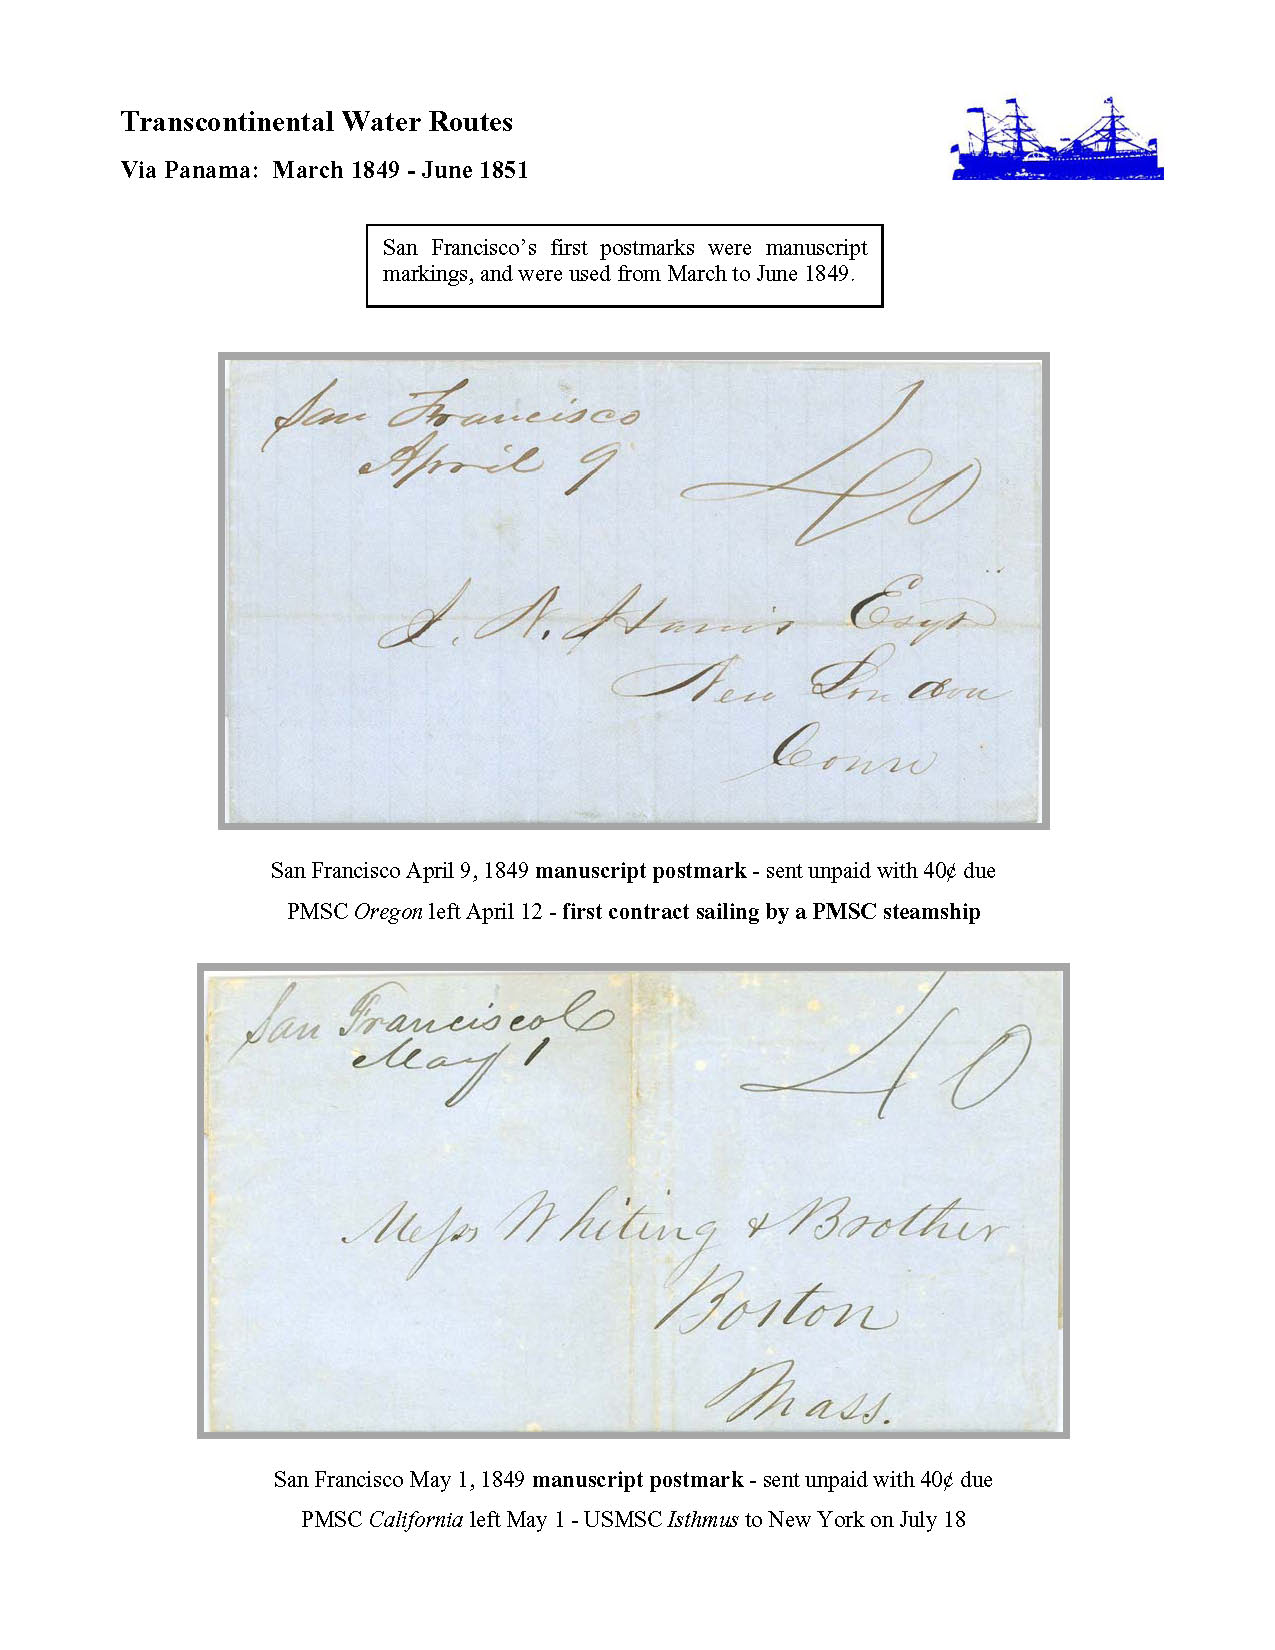 Transcontinental Water Routes
Via Panama:  March 1849 - June 1851
San Francisco’s first postmarks were manuscript
markings, and were used from March to June 1849.
San Francisco
April 9
40
J. N. Harris Esqr
New London
Conn
San Francisco April 9, 1849 manuscript postmark - sent unpaid with 40¢ due
PMSC Oregon left April 12 - first contract sailing by a PMSC steamship
San Francisco C
May 1
40
Messrs Whiting & Brother
Boston
Mass.
San Francisco May 1, 1849 manuscript postmark - sent unpaid with 40¢ due
PMSC California left May 1 - USMSC Isthmus to New York on July 18